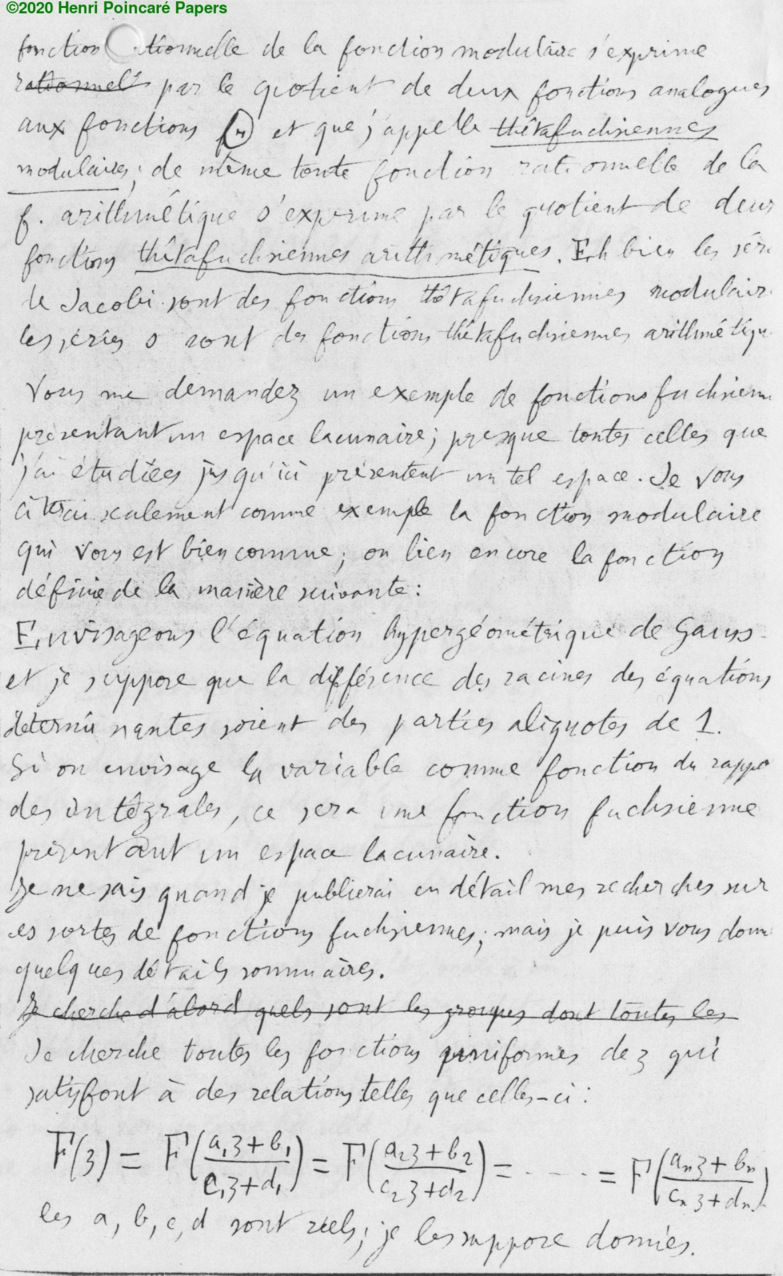 ©2020 Henri Poincaré Papers
fonction rationnelle de la fonction modulaire s'exprime
rationnell par le quotient de deux fonctions analogues
aux fonctions et que j'appelle thêtafuchsiennes
modulaires; de même toute fonction rationnelle de la
f. arithmétique s'exprime par le quotient de deux
fonctions thêtafuchsiennes arithmétiques. Eh bien les séri
de Jacobi sont des fonctions thêtafuchsiennes modulair
les séries s sont des fonctions thêtafuchsiennes arithmétiqu
Vous me demandez un exemple de fonctions fuchsienn
présentant un espace lacunaire; presque toutes celles que
j'ai étudiées jusqu'ici présentent un tel espace. Je vous
citerai seulement comme exemple la fonction modulaire
qui vous est bien connue; ou bien encore la fonction
définie de la manière suivante:
Envisageons l'équation hypergéométrique de Gauss
et je suppose que la différence des racines des équations
déterminantes soient des parties aliquotes de 1.
Si on envisage la variable comme fonction du rappo
des intégrales, ce sera une fonction fuchsienne
présentant un espace lacunaire.
Je ne sais quand je publierai en détail mes recherches sur
ces sortes de fonctions fuchsiennes; mais je puis vous donn
quelques détails sommaires.
Je cherche d'abord quels sont les groupes dont toutes les
Je cherche toutes les fonctions uniformes de z qui
satisfont à des relations telles que celles-ci:
F(z) = F(a₁z+b₁/c₁z+d₁) = F(a₂z+b₂/c₂z+d₂) = ..... = F(aₙz+bₙ/cₙz+dₙ)
les a, b, c, d sont réels; je les suppose donnés.